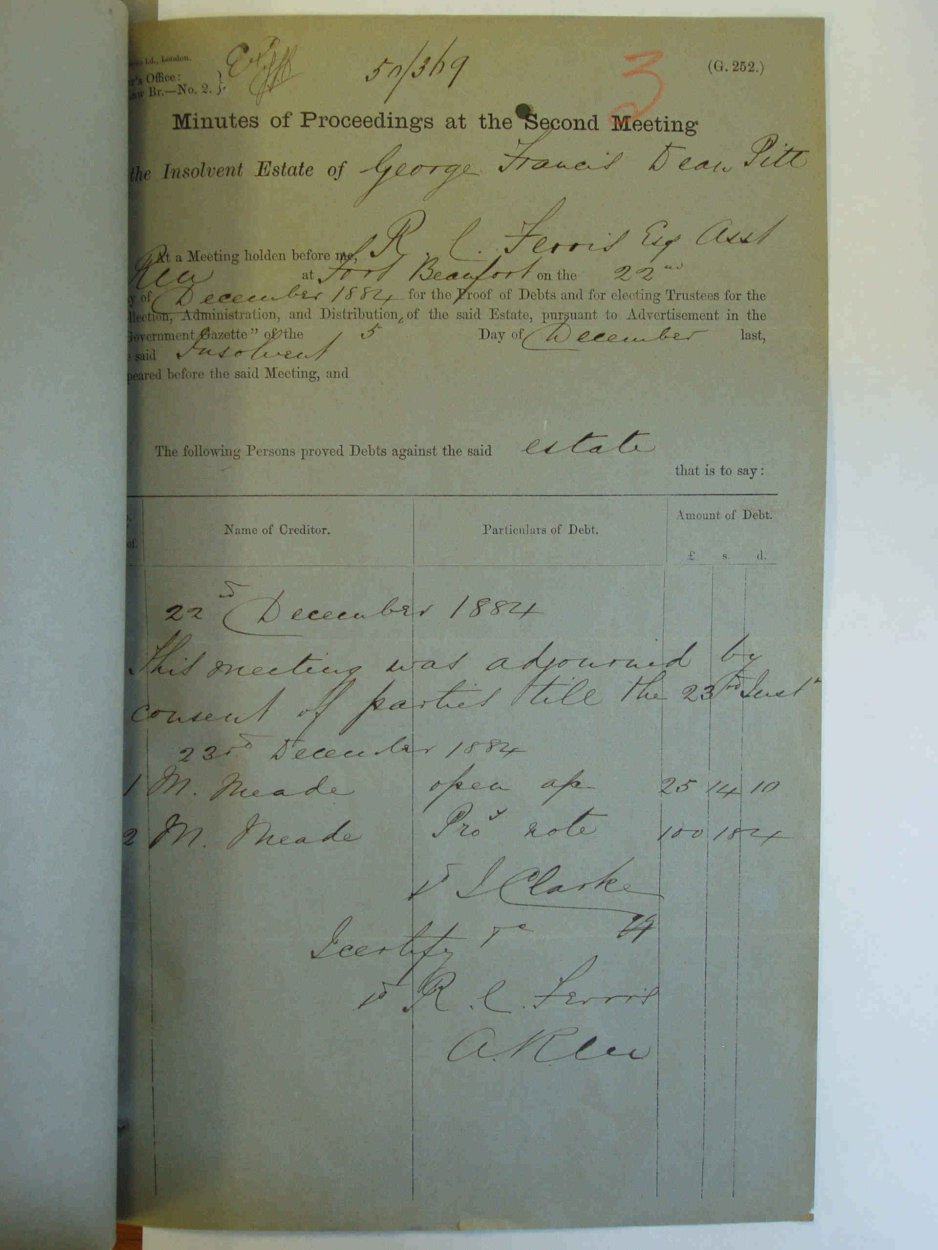 Ld., London.
r's Office:
aw Br.—No. 2. }
50/369
3
(G. 252.)
Minutes of Proceedings at the Second Meeting
the Insolvent Estate of George Francis Dean Pitt
At a Meeting holden before me, R C. Ferris Esq Asst
at Fort Beaufort on the 22nd
y of December 1884 for the Proof of Debts and for electing Trustees for the
llection, Administration, and Distribution, of the said Estate, pursuant to Advertisement in the
Government Gazette" of the 5 Day of December last,
e said Insolvent
peared before the said Meeting, and
The following Persons proved Debts against the said estate
that is to say:
Name of Creditor. Particulars of Debt. Amount of Debt.
£ s. d.
22 December 1884
This meeting was adjourned by
consent of parties till the 23rd Inst
23rd December 1884
1 M. Meade open ap 25 14 10
2 M. Meade Pro note 100 18 4
J Clarke
I certify
R. C. Ferris